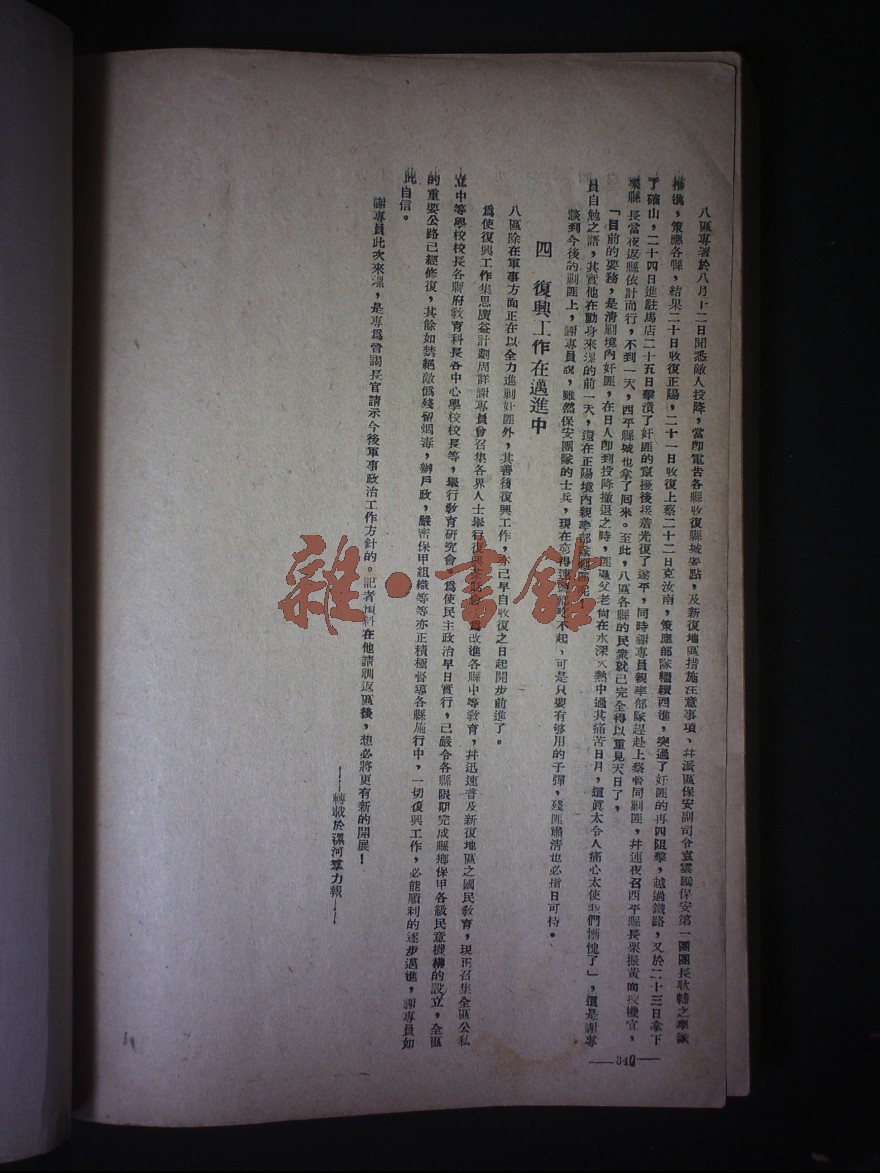 八區專署於八月十二日聞悉敵人投降，當卽電告各縣收復縣城要點，及新復地區措施注意事項、幷派區保安副司令袁雲 保安第一團團長耿輔之率隊
推進，策應各縣，結果二十日收復正陽，二十一日收復上蔡二十二日克汝南，策應部隊繼續西進，突過了奸匪的再四阻擊，越過鐵路，又於二十三日拿下
了確山，二十四日進駐馬店二十五日擊潰了奸匪的竄擾後接着光復了遂平，同時謝專員親率部隊趕赴上蔡 同剿匪，幷連夜召西平縣長栗振黃面授機宜，
栗縣長當夜返縣依計而行，不到一天，西平縣城也拿了囘來。至此，八區各縣的民衆就已完全得以重見天日了，
「目前的要務，是清剿境內奸匪，在日人卽到投降撤退之時，匪區父老尙在水深火熱中過其痛苦日月，這眞太令人痛心太使我們慚愧了」，這是謝專
員自勉之語，其實他在動身來漯的前一天，還在正陽境內親率部隊剿匪呢！
談到今後的剿匪上，謝專員說，雖然保安團隊的士兵，現在窮得連 不起，可是只要有够用的子彈，殘匪肅清也必指日可待。
四　復興工作在邁進中
八區除在軍事方面正在以全力進剿奸匪外，其善後復興工作，亦已早自收復之日起開步前進了。
爲使復興工作集思廣益計劃周詳謝專員曾召集各界人士舉行復興茶話會，爲改進各縣中等敎育，幷迅速普及新復地區之國民敎育，現正召集全區公私
立中等學校校長各縣府敎育科長各中心學校校長等，舉行敎育研究會，爲使民主政治早日實行，已嚴令各縣限期完成縣鄉保甲各級民意機構的設立，全區
的重要公路已經修復，其餘如禁絕敵僞殘留烟毒，辦戶政，嚴密保甲組織等等亦正積極督導各縣施行中，一切復興工作，必能順利的逐步邁進，謝專員如
此自信。
謝專員此次來漯，是專爲晉謁長官請示今後軍事政治工作方針的。記者預料在他請訓返區後，想必將更有新的開展！
——轉載於漯河羣力報——
—340—
雜·書館